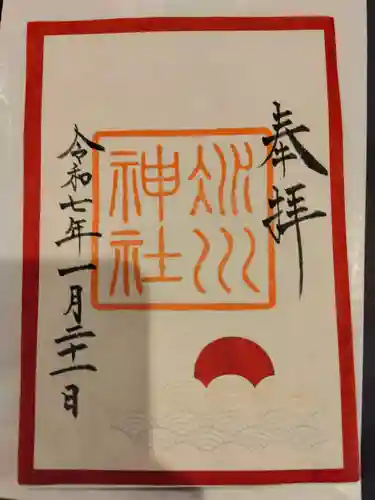 奉拝
冰川
神社
令和七年一月二十一日